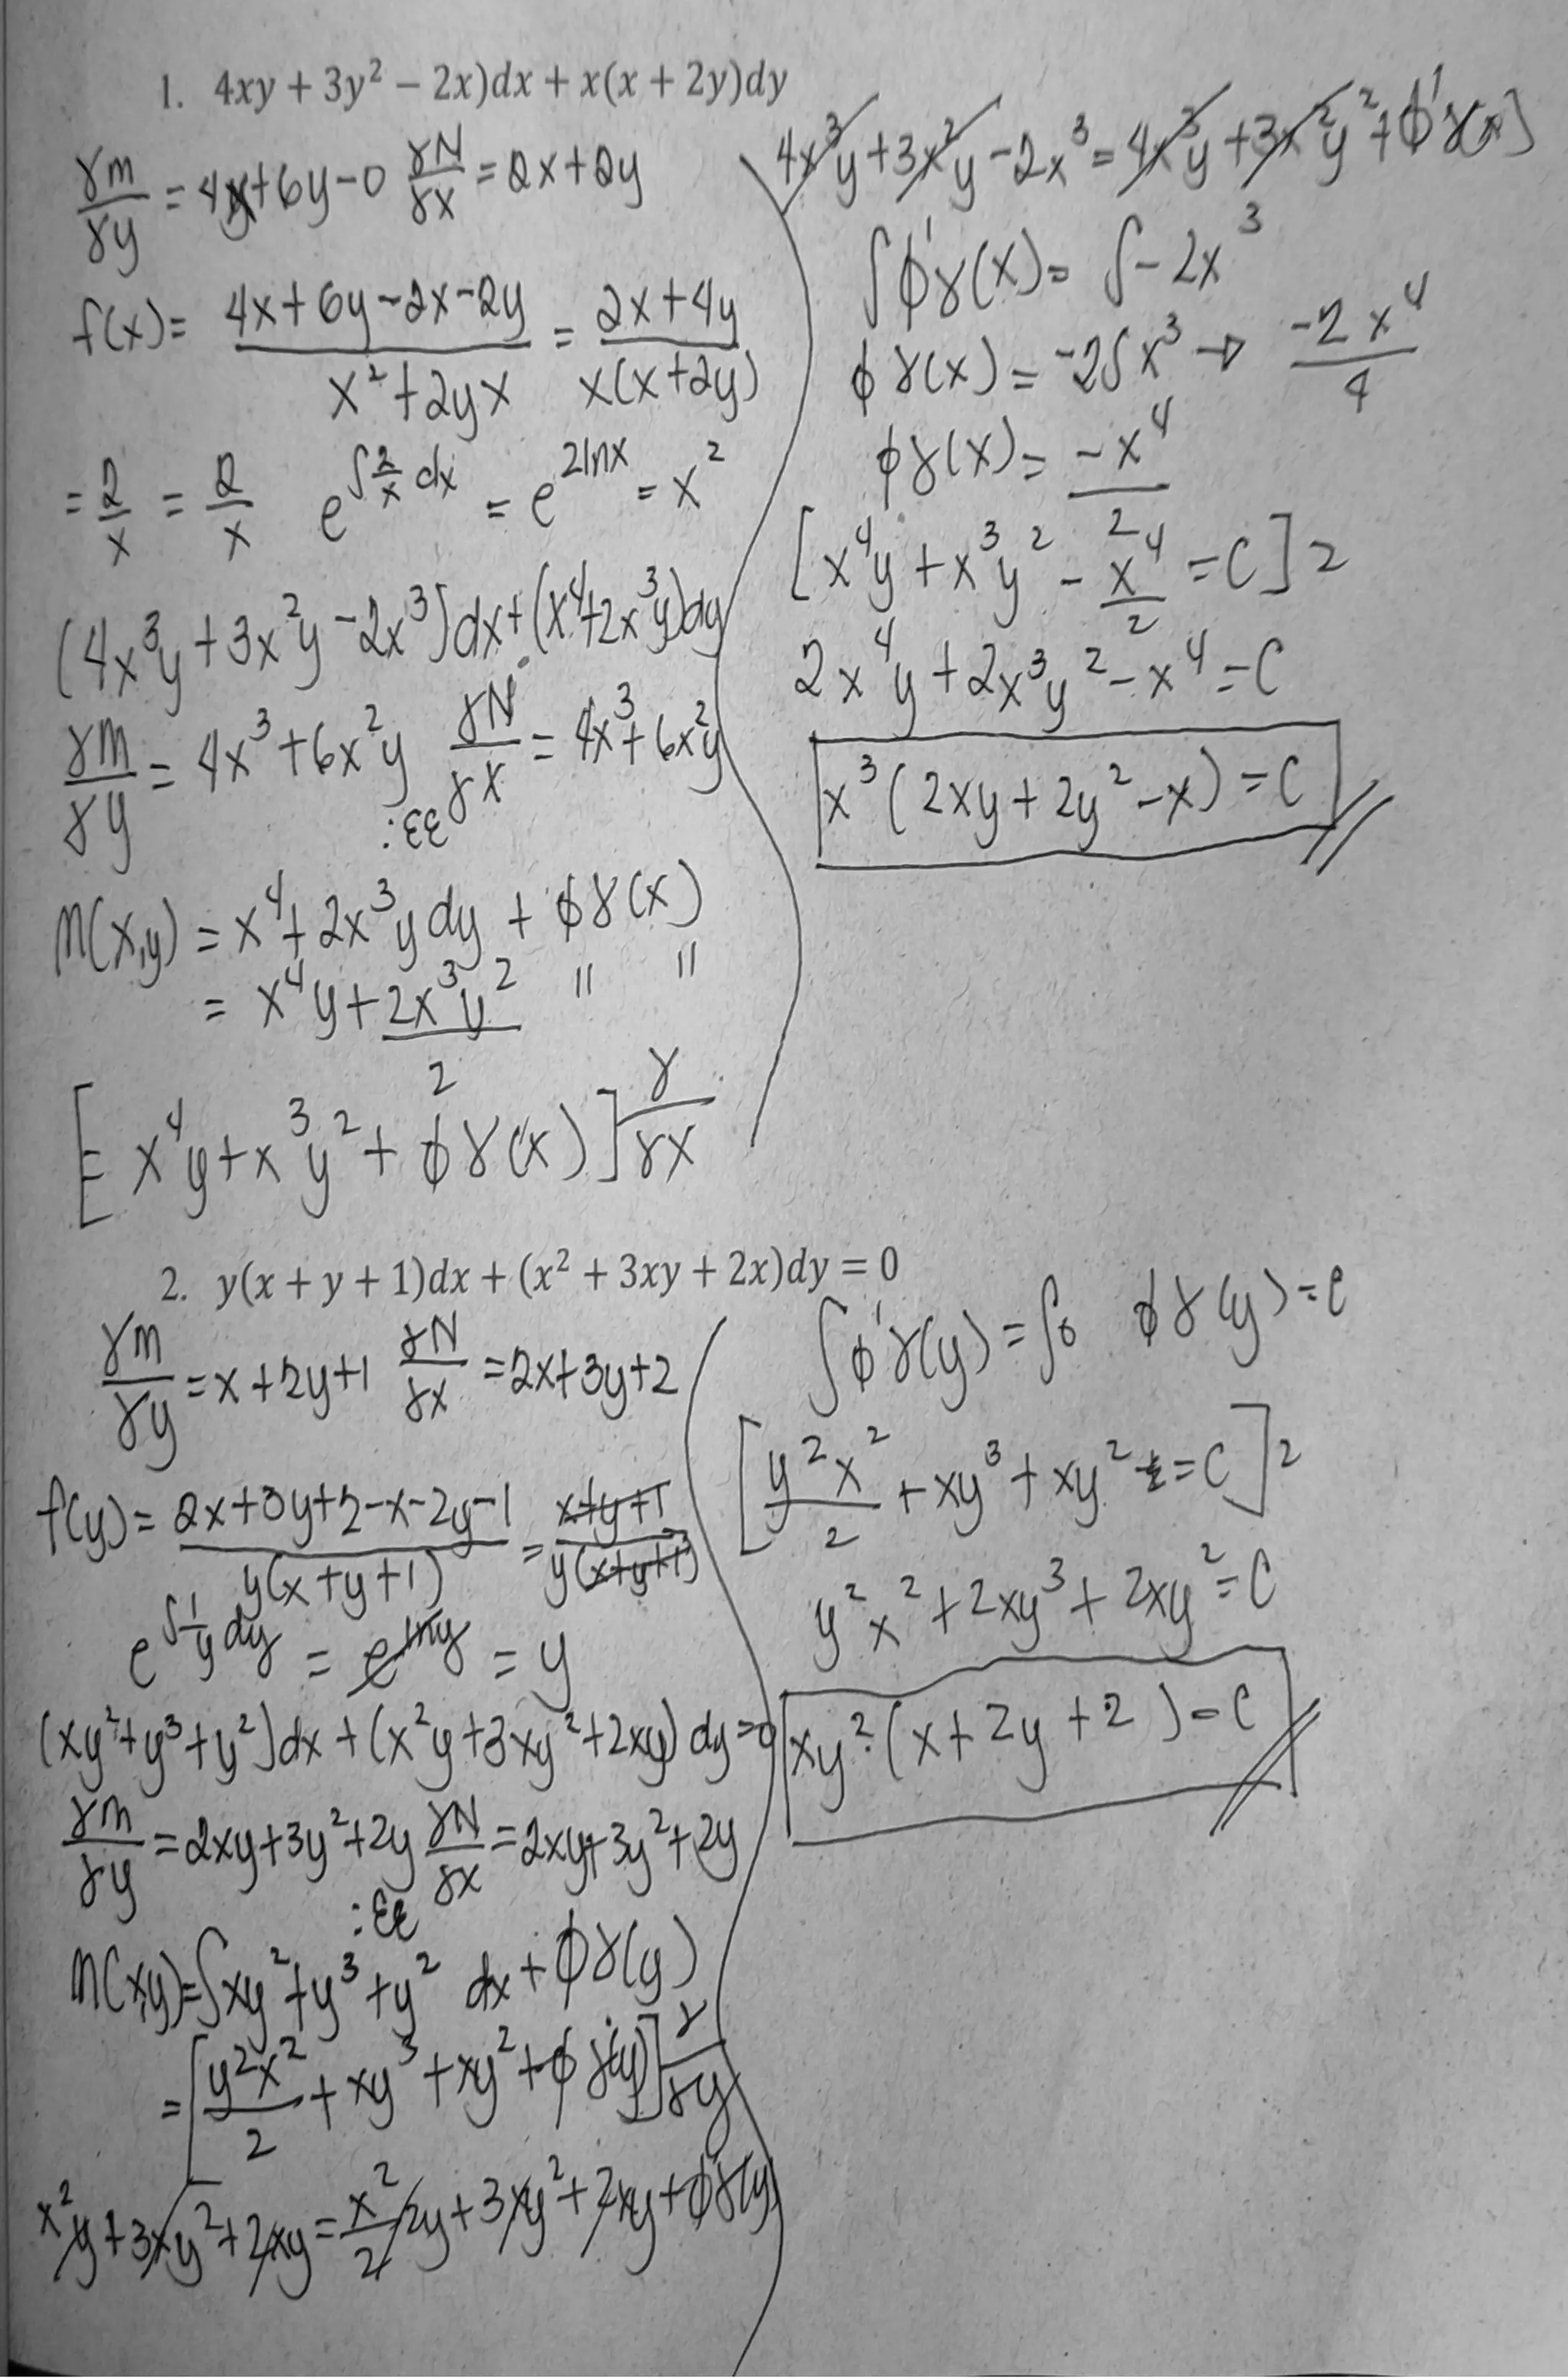 1. 4xy + 3y² − 2x)dx + x(x + 2y)dy
γm/γy = 4x+6y-0 γN/γx = 2x+2y
f(x)= (4x+6y-2x-2y)/(x²+2yx) = (2x+4y)/(x(x+2y))
= 2/x = 2/x e^(∫2/x dx) = e^(2lnx) = x²
(4x³y+3x²y-2x³)dx+(x⁴+2x³y)dy
γm/γy = 4x³+6x²y γN/γx = 4x³+6x²y
:εε
M(x,y) = x⁴+2x³y dy + ϕγ(x)
= x⁴y+2x³y²/2 " "
[= x⁴y+x³y²+ϕγ(x)] γ/γx
4x³y+3x²y-2x³=4x³y+3x²y²+ϕ'γ(x)]
∫ϕ'γ(x)= ∫-2x³
ϕγ(x)=-2∫x³→ -2x⁴/4
ϕγ(x)= -x⁴/2
[x⁴y+x³y²-x⁴/2=C]2
2x⁴y+2x³y²-x⁴=C
x³(2xy+2y²-x)=C
2. y(x + y + 1)dx + (x² + 3xy + 2x)dy = 0
γm/γy =x+2y+1 γN/γx =2x+3y+2
f(y)= (2x+3y+2-x-2y-1)/(y(x+y+1)) = (x+y+1)/(y(x+y+1))
e^(∫1/y dy) = e^(lny) = y
(xy²+y³+y²)dx+(x²y+3xy²+2xy)dy=0
γm/γy =2xy+3y²+2y γN/γx =2xy+3y²+2y
:εε
M(x,y)=∫xy²+y³+y² dx+ϕγ(y)
=[y²x²/2+xy³+xy²+ϕγ(y)] γ/γy
x²y+3xy²+2xy= x²/2 2y+3xy²+2xy+ϕ'γ(y)
∫ϕ'γ(y)=∫0 ϕγ(y)=c
[y²x²/2+xy³+xy²=C]2
y²x²+2xy³+2xy²=C
xy²(x+2y+2)=C